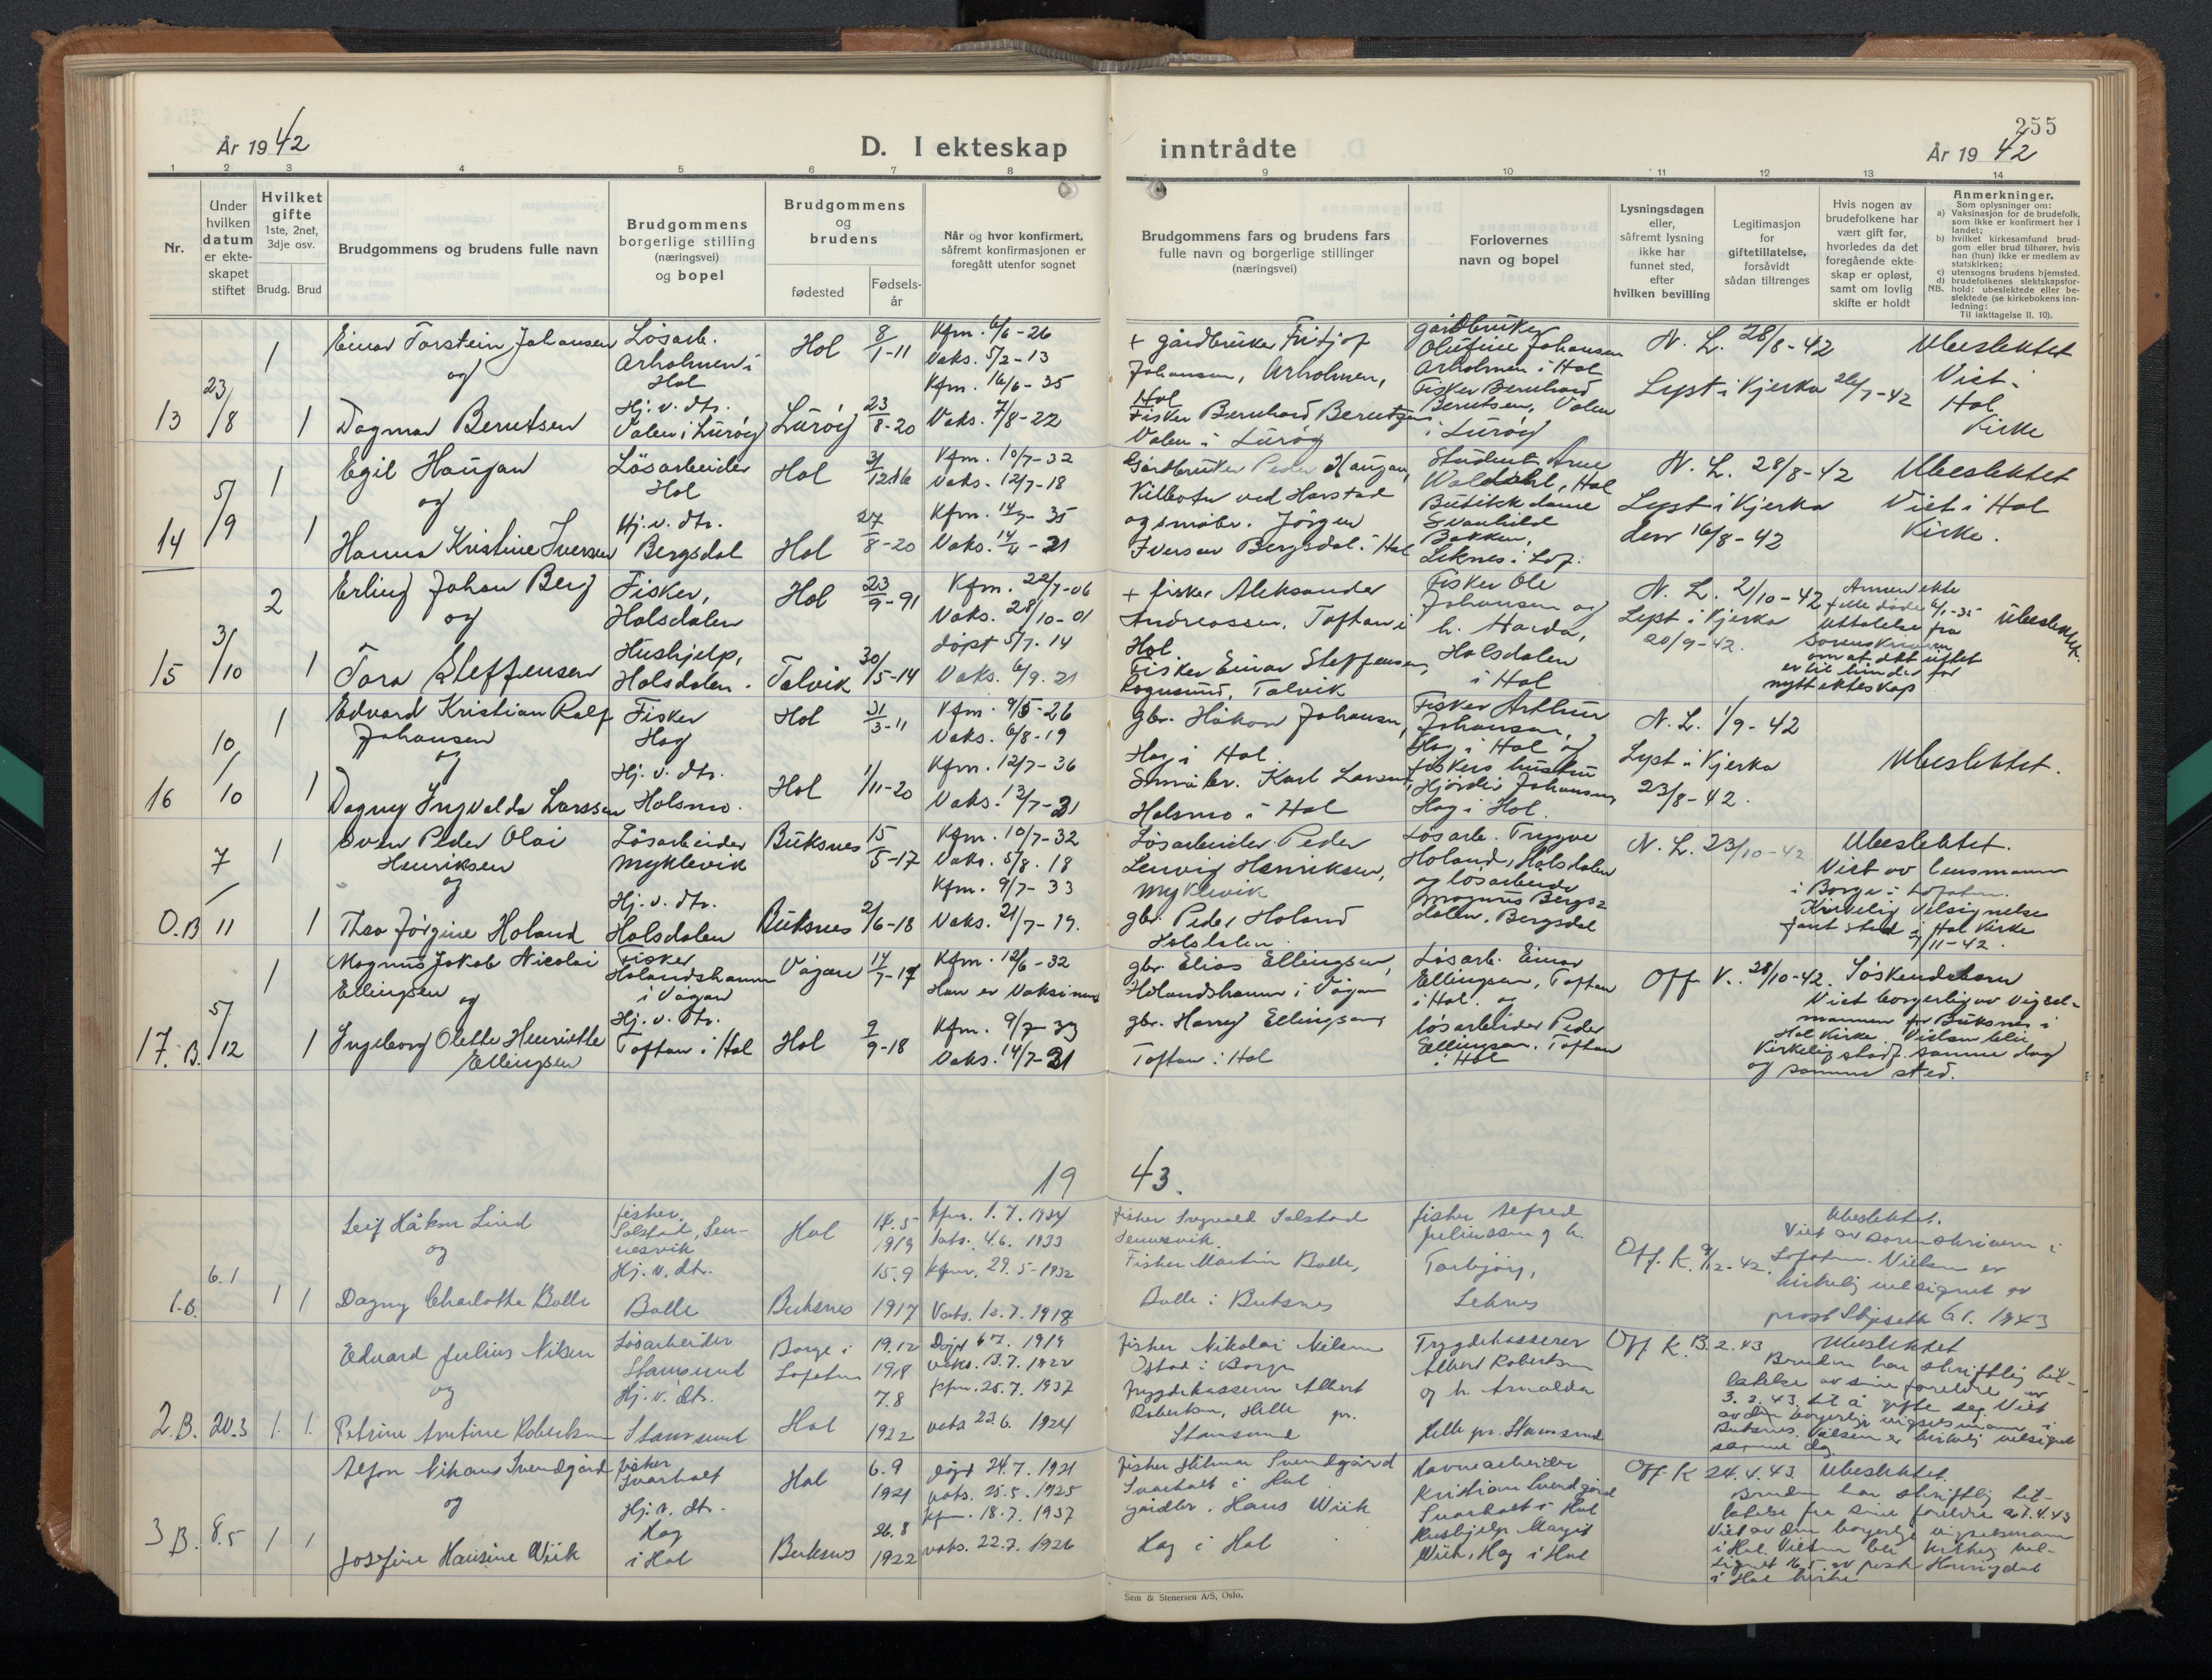 255
År 1942
D. I ekteskap inntrådte
År 1942
1 2 3 4 5 6 7 8 9 10 11 12 13 14
Nr.
Under hvilken datum er ekteskapet stiftet
Hvilket gifte 1ste, 2net, 3dje osv.
Brudg. Brud
Brudgommens og brudens fulle navn
Brudgommens borgerlige stilling (næringsvei) og bopel
Brudgommens og brudens
fødested
Fødsels-år
Når og hvor konfirmert, såfremt konfirmasjonen er foregått utenfor sognet
Brudgommens fars og brudens fars fulle navn og borgerlige stillinger (næringsvei)
Forlovernes navn og bopel
Lysningsdagen eller, såfremt lysning ikke har funnet sted, efter hvilken bevilling
Legitimasjon for giftetillatelse, forsåvidt sådan tiltrenges
Hvis nogen av brudefolkene har vært gift før, hvorledes da det foregående ekteskap er opløst, samt om lovlig skifte er holdt
Anmerkninger.
Som oplysninger om:
a) Vaksinasjon for de brudefolk, som ikke er konfirmert her i landet;
b) hvilket kirkesamfund brudgom eller brud tilhører, hvis han (hun) ikke er medlem av statskirken;
c) utensogns brudens hjemsted.
d) brudefolkenes slektskapsforhold: ubeslektede eller beslektede (se kirkebokens innledning:
NB.
Til iakttagelse II. 10).
13 23/8 1 1
Einar Torstein Johansen
og
Dagmar Berntsen
Løsarb.
Arholmen i
Hol
Hj. v. dtr.
Valen i Lurøy
Hol 8/1-11
Lurøy 23/8-20
Kfm. 6/6-26
Vaks. 5/2-13
Kfm. 16/6-35
Vaks. 7/8-22
+ gårdbruker Fritjof
Johansen, Arholmen,
Hol
Fisker Bernhard Berntzen
Valen i Lurøy
gårdbruker
Olufine Johansen
Arholmen i Hol
Fisker Bernhard
Berntsen, Valen
i Lurøy
N. L. 28/8-42
Lyst i Kjerka 26/7-42
Ubeslektet
Viet i
Hol
Kirke
14 5/9 1 1
Egil Haugan
og
Hanna Kristine Iversen
Løsarbeider
Hol
Hj. v. dtr.
Bergsdal
Hol 31/12-16
Hol 27/8-20
Kfm. 10/7-32
Vaks. 12/7-18
Kfm. 14/7-35
Vaks. 14/4-21
Gårdbruker Peder Haugan,
Kilbotn ved Harstad
og småbr. Jørgen
Iversen Bergsdal i Hol
Student Arne
Woldahl, Hol
Butikkdame
Svanhild
Bakken,
Leknes i Lof.
N. L. 28/8-42
Lyst i Kjerka
den 16/8-42
Ubeslektet
Viet i Hol
Kirke.
15 3/10 2 1
Erling Johan Berg
og
Tora Steffensen
Fisker,
Holsdalen
Hushjelp,
Holsdalen.
Hol 23/9-91
Talvik 30/5-14
Kfm. 22/7-06
Vaks. 28/10-01
døpt 5/7.14
Vaks. 6/9.21
+ fisker Aleksander
Andreassen, Toftan i
Hol.
Fisker Einar Steffensen,
Rognsund, Talvik
Fisker Ole
Johansen og
h. Harda,
Holsdalen
i Hol
N. L. 2/10-42
Lyst i Kjerka
20/9-42.
Annen ekte
felle døde 6/1-35
Uttalelse fra
Sorenskriveren
om at dkt uftet
er til hinder for
nytt ekteskap
Ubeslektet.
16 10/10 1 1
Edvard Kristian Ralf
Johansen
og
Dagny Ingvalda Larssen
Fisker
Hag
Hj. v. dtr.
Holsmo.
Hol 31/3-11
Hol 1/11-20
Kfm. 9/5-26
Vaks. 6/8-19
Kfm. 12/7-36
Vaks. 13/7-21
gbr. Håkon Johansen,
Hag i Hol.
Småbr. Karl Larsen,
Holsmo i Hol
Fisker Arthur
Johansen,
Hag i Hol og
fiskers hustru
Hjørdis Johansen,
Hag i Hol.
N. L. 1/9-42
Lyst i Kjerka
23/8-42.
Ubeslektet.
O.B 7/11 1 1
Sven Peder Olai
Henriksen
og
Thea Jørgine Holand
Løsarbeider
Myklevik
Hj. v. dtr.
Holsdalen
Buksnes 15/5-17
Buksnes 2/6-18
Kfm. 10/7-32
Vaks. 5/8.18
Kfm. 9/7-33
Vaks. 21/7-19.
Løsarbeider Peder
Lenvig Henriksen,
Myklevik
gbr. Peder Holand
Holsdalen
Løsarb. Trygve
Holand, Holsdalen
og løsarbeider
Magnus Bergs=
dalen. Bergsdal
N. L. 23/10-42
Ubeslektet.
Viet av lensmann
i Borge i Lofoten.
Kirkelig velsignelse
fant sted i Hol Kirke
7/11-42.
17.B. 5/12 1 1
Magnus Jakob Nicolai
Ellingsen og
Ingeborg Olette Henriette
Ellingsen
Fisker
Holandshamn
i Vågan
Hj. v. dtr.
Toftan i Hol
Vågan 14/7-17
Hol 9/9-18
Kfm. 12/6-32
Han er Vaksinert
Kfm. 9/7-33
Vaks. 14/7-21
gbr. Elias Ellingsen,
Holandshamn i Vågan
gbr. Harry Ellingsen,
Toftan i Hol
Løsarb. Einar
Ellingsen, Toftan
i Hol. og
løsarbeider Peder
Ellingsen. Toftan
i Hol
Off V. 28/10-42.
Søskendebarn
Viet borgerlig av vigsel-
mannen for Buksnes i
Hol Kirke. Vielsen blei
Kirkelig stadf. samme dag
og samme sted.
1943.
1.B. 6.1 1 1
Leif Håkon Lind
og
Dagny Charlotte Balle
fisker,
Solstad, Sen-
nesvik
Hj. v. dtr.
Balle
Hol 14.5 1919
Buksnes 15.9 1917
kfm. 1.7.1934
Vaks. 4.6.1933
kfm. 29.5-1932
Vaks. 12.7.1918
fisker Ingvald Solstad
Sennesvik.
Fisker Martin Balle,
Balle i Buksnes
fisker Alfred
Juliussen og h.
Torbjörg,
Leknes
Off. K. 9/12-42.
Ubeslektet.
Viet av sorenskriveren i
Lofoten. Vielsen er
kirkelig velsignet av
prost 6.1.1943
2.B. 20.3 1. 1.
Edvard Julius Nilsen
og
Petrine Antine Robertsen
Løsarbeider
Stamsund
Hj. v. dtr.
Stamsund
Borge i
Lofoten 19.12 1918
Hol 7.8 1922
Døpt 6.7.1919
vaks. 13.7.1922
kfm. 25.7.1937
vaks 23.6.1924
fisker Nikolai Nilsen
Ostad i Borge
trygdekasserer Albert
Robertsen, Helle pr.
Stamsund
Trygdekasserer
Albert Robertsen
og h. Arnolda
Helle pr. Stamsund
Off K. B. 2.43
Ubeslektet
Bruden har skriftlig til-
latelse av sine foreldre av
3.2.43 til å gifte seg. Viet
av den borgerlige vigselsmann i
Buksnes. Vielsen er kirkelig velsignet
samme dag.
3 B. 8.5 1 1
Alfon Nikaus Svendgård
og
Josefine Hansine Wiik
fisker
Svarholt
Hj. v. dtr.
Hag
i Hol
Hol 6.9 1921
Buksnes 26.8 1922
døpt 24.7.1921
vaks. 25.5.1925
kfm. 18.7.1937
vaks. 22.7.1926
fisker Hilmar Svendgård
Svarholt i Hol
gårdbr. Hans Wiik
Hag i Hol
Havnearbeider
Kristian Svendgård
Svarholt i Hol
Hushjelp Margit
Wiik, Hag i Hol
Off. K 24.4.43.
Ubeslektet.
Bruden har skriftlig til-
latelse fra sine foreldre av 7.4.43
Viet av den borgerlige vigselsmann
i Hol. Vielsen ble kirkelig vel-
signet 16.5. av prost Honingdal
i Hol kirke
Sem & Stenersen A/S, Oslo.